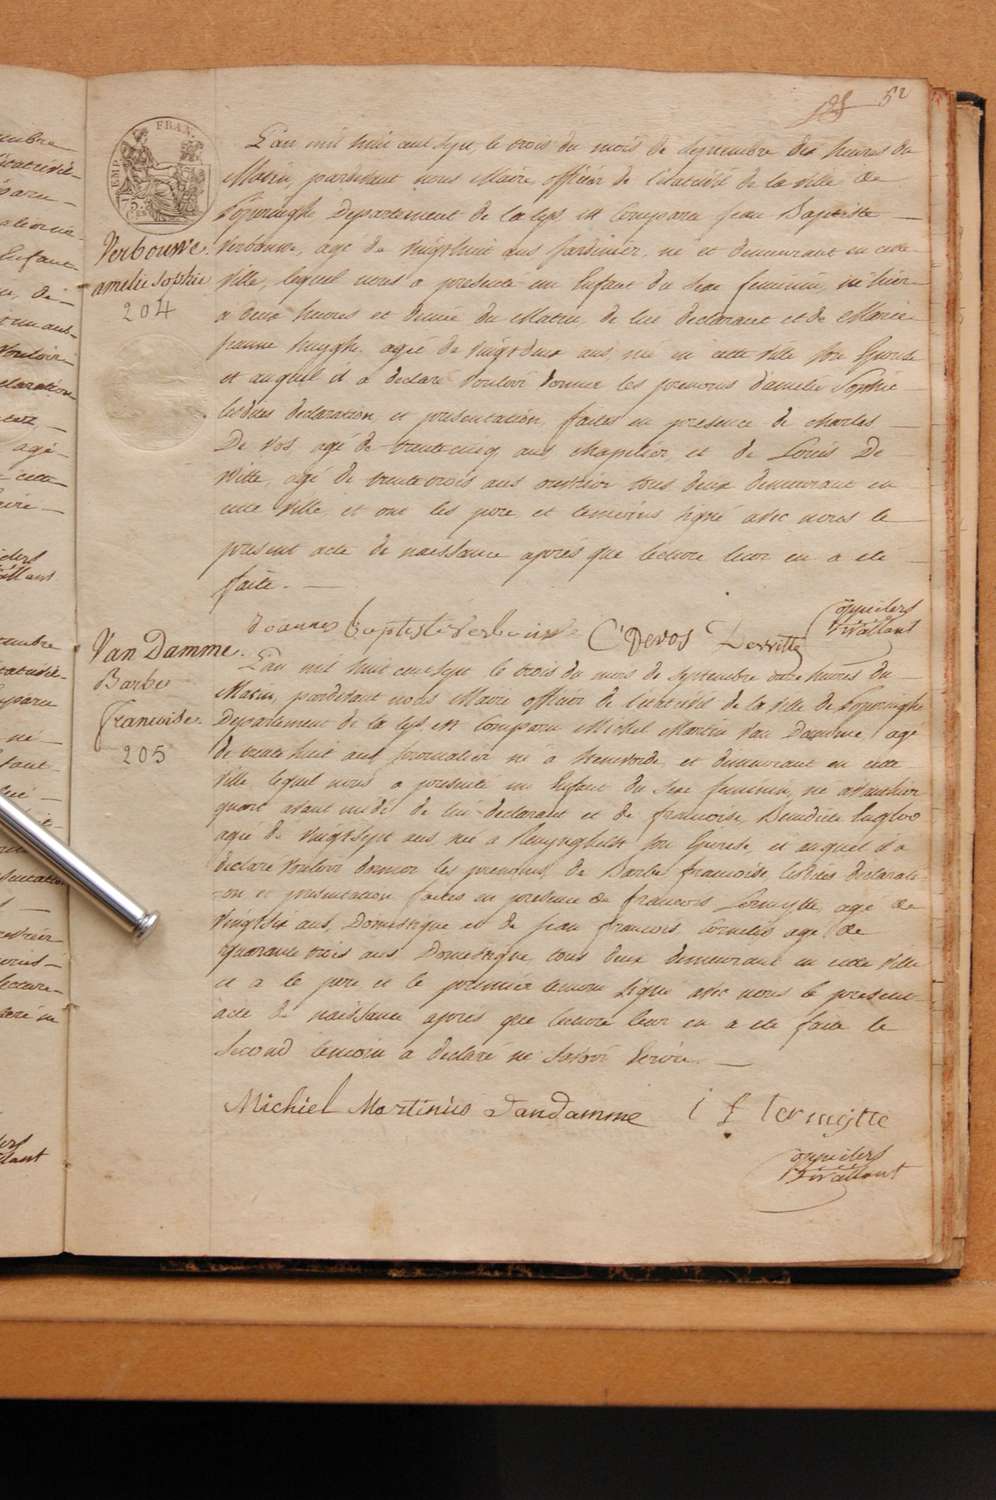 52
EMP. FRAN.
Verbouwe
amelie Sophie
204
L'an mil huit cent sept, le trois du mois de Septembre dix heures du
Matin, pardevant nous Maire officier de l'etat civil de la ville de
Poperinghe Departement de la Lys est Comparu Jean Baptiste
Verbouwe, agé de vingthuit ans Jardinier, né et demeurant en cette
ville, lequel nous a presenté un Enfant du Sexe feminin, né hier
a deux heures et demie du Matin, de lui declarant et de Marie
Jeanne huyghe, agée de vingtdeux ans née en cette ville Son Epouse
et auquel il a declaré vouloir donner les prenoms d'amelie Sophie
lesdites declaration et presentation, faites en presence de Charles
De Vos, agé de trentecinq ans Chapelier, et de Louis De
Witte, agé de trentetrois ans ouvrier tous deux demeurant en
cette ville, et ont les pere et temoins signé avec nous le
present acte de naissance après que lecture leur en a eté
faite.
Joannes Baptiste Verbouwe C Devos Dewitte
B Vaillant
Van Damme
Barbe
francoise
205
L'an mil huit cent sept le trois du mois de Septembre onze heures du
Matin, pardevant nous Maire officier de l'etat civil de la ville de Poperinghe
Departement de la Lys est Comparu Michel Martin Van Damme, agé
de trente huit ans journalier né a Steenvorde et demeurant en cette
ville lequel nous a presenté un Enfant du Sexe feminin, né avanthier
quart avant midi de lui declarant et de francoise Benedicte
agée de vingtsept ans, née a Reninghelst Son Epouse, et auquel il a
declaré vouloir donner les prenoms de Barbe francoise, lesdites declarati-
on et presentation faites en presence de francois Termytte, agé de
vingtsix ans, Domestique et de Jean francois Cornelis agé de
quarante trois ans Domestique, tous deux demeurant en cette ville
et a le pere et le premier temoin Signé avec nous le present
acte de naissance après que lecture leur en a eté faite le
Second temoin a declaré ne Savoir Ecrire.
Michiel Martinus Vandamme i f termytte
B Vaillant